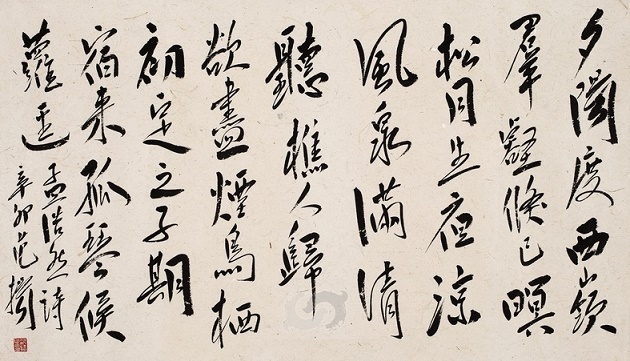 夕陽度西嶺
羣壑倏已暝
松月生夜涼
風泉滿清
聽樵人歸
欲盡煙鳥栖
初定之子期
宿来孤琴候
蘿逕
孟浩然詩
辛卯范